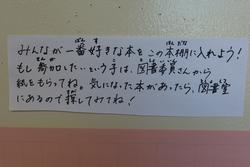 みんなが一番好きな本をこの本棚に入れよう!
もし参加したいという子は、図書委員さんから
紙をもらってね。気になった本があったら、図書室
にあるので探してみてね!